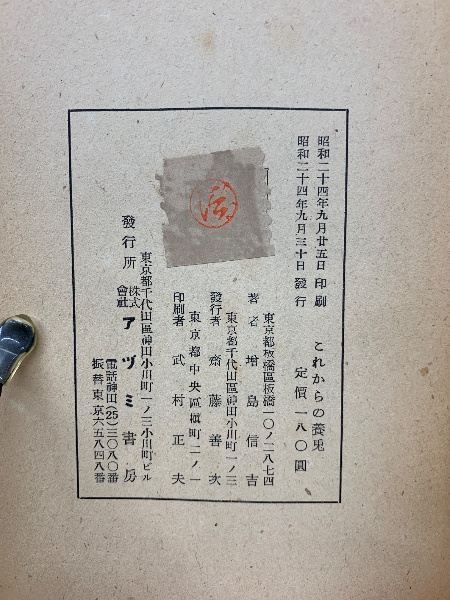 昭和二十四年九月廿五日 印刷
昭和二十四年九月三十日 發行
これからの養兎
定價 一八〇圓
東京都板橋區板橋一〇ノ二八七四
著者 增島信吉
東京都千代田區神田小川町一ノ三
發行者 齋藤善次
東京都中央區槇町二ノ一
印刷者 武村正夫
東京都千代田區神田小川町一ノ三小川町ビル
發行所 株式會社 アヅミ書房
電話神田(25)三〇八〇番
振替東京六五八四八番